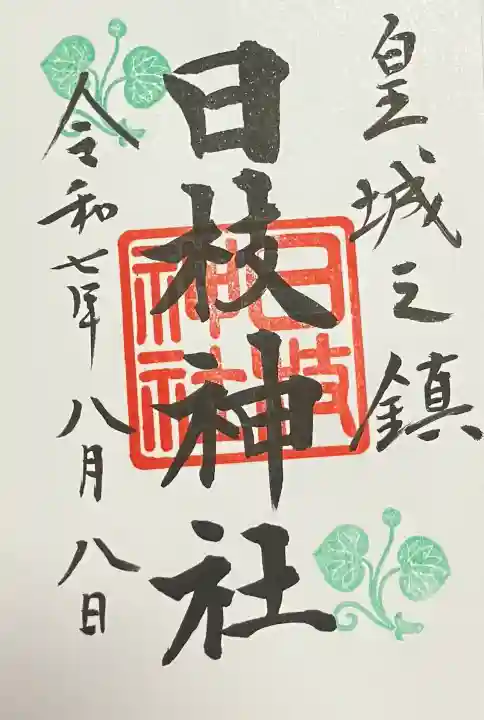 皇城之鎮
日枝神社
日枝
神社
令和七年八月八日